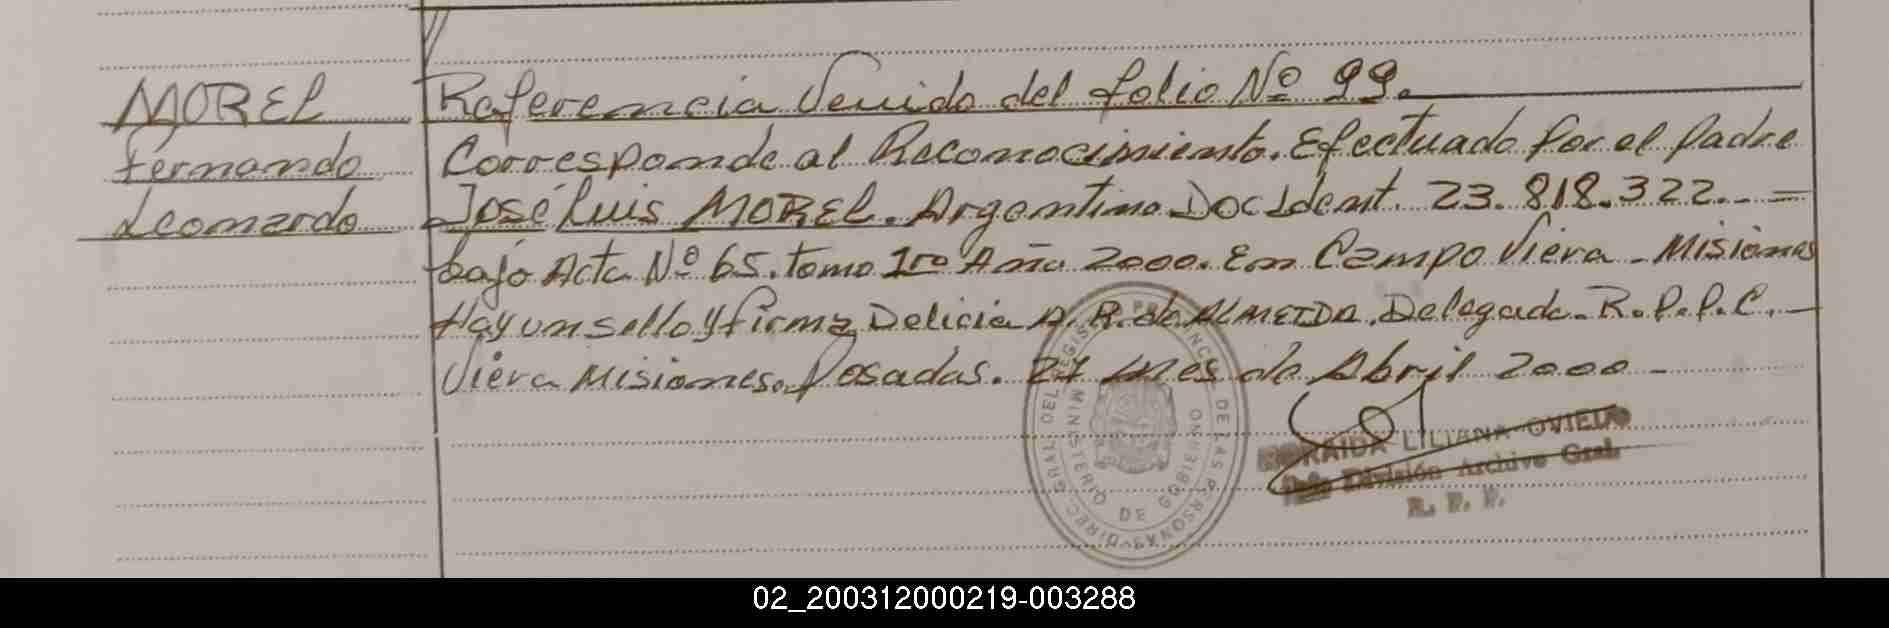 MOREL
Fernando
Leonardo
Referencia Venido del folio Nº 99.
Corresponde al Reconocimiento. Efectuado Por el Padre
José Luis MOREL. Argentino Doc Ident. 23.818.322. - =
bajo Acta Nº 65. tomo 1ro Año 2000. En Campo Viera - Misiones
Hay un sello y firma Delicia A. R. de ALMEIDA. Delegada. R.P.P.C. -
Viera Misiones. Posadas. 27 mes de Abril 2000 -
DIREC. GRAL DEL REGIST. PROVINC. DE LAS PERSONAS
MINISTERIO DE GOBIERNO
LILIANA OVIEDO
Jefe División Archivo Gral.
R. P. P.
02_200312000219-003288